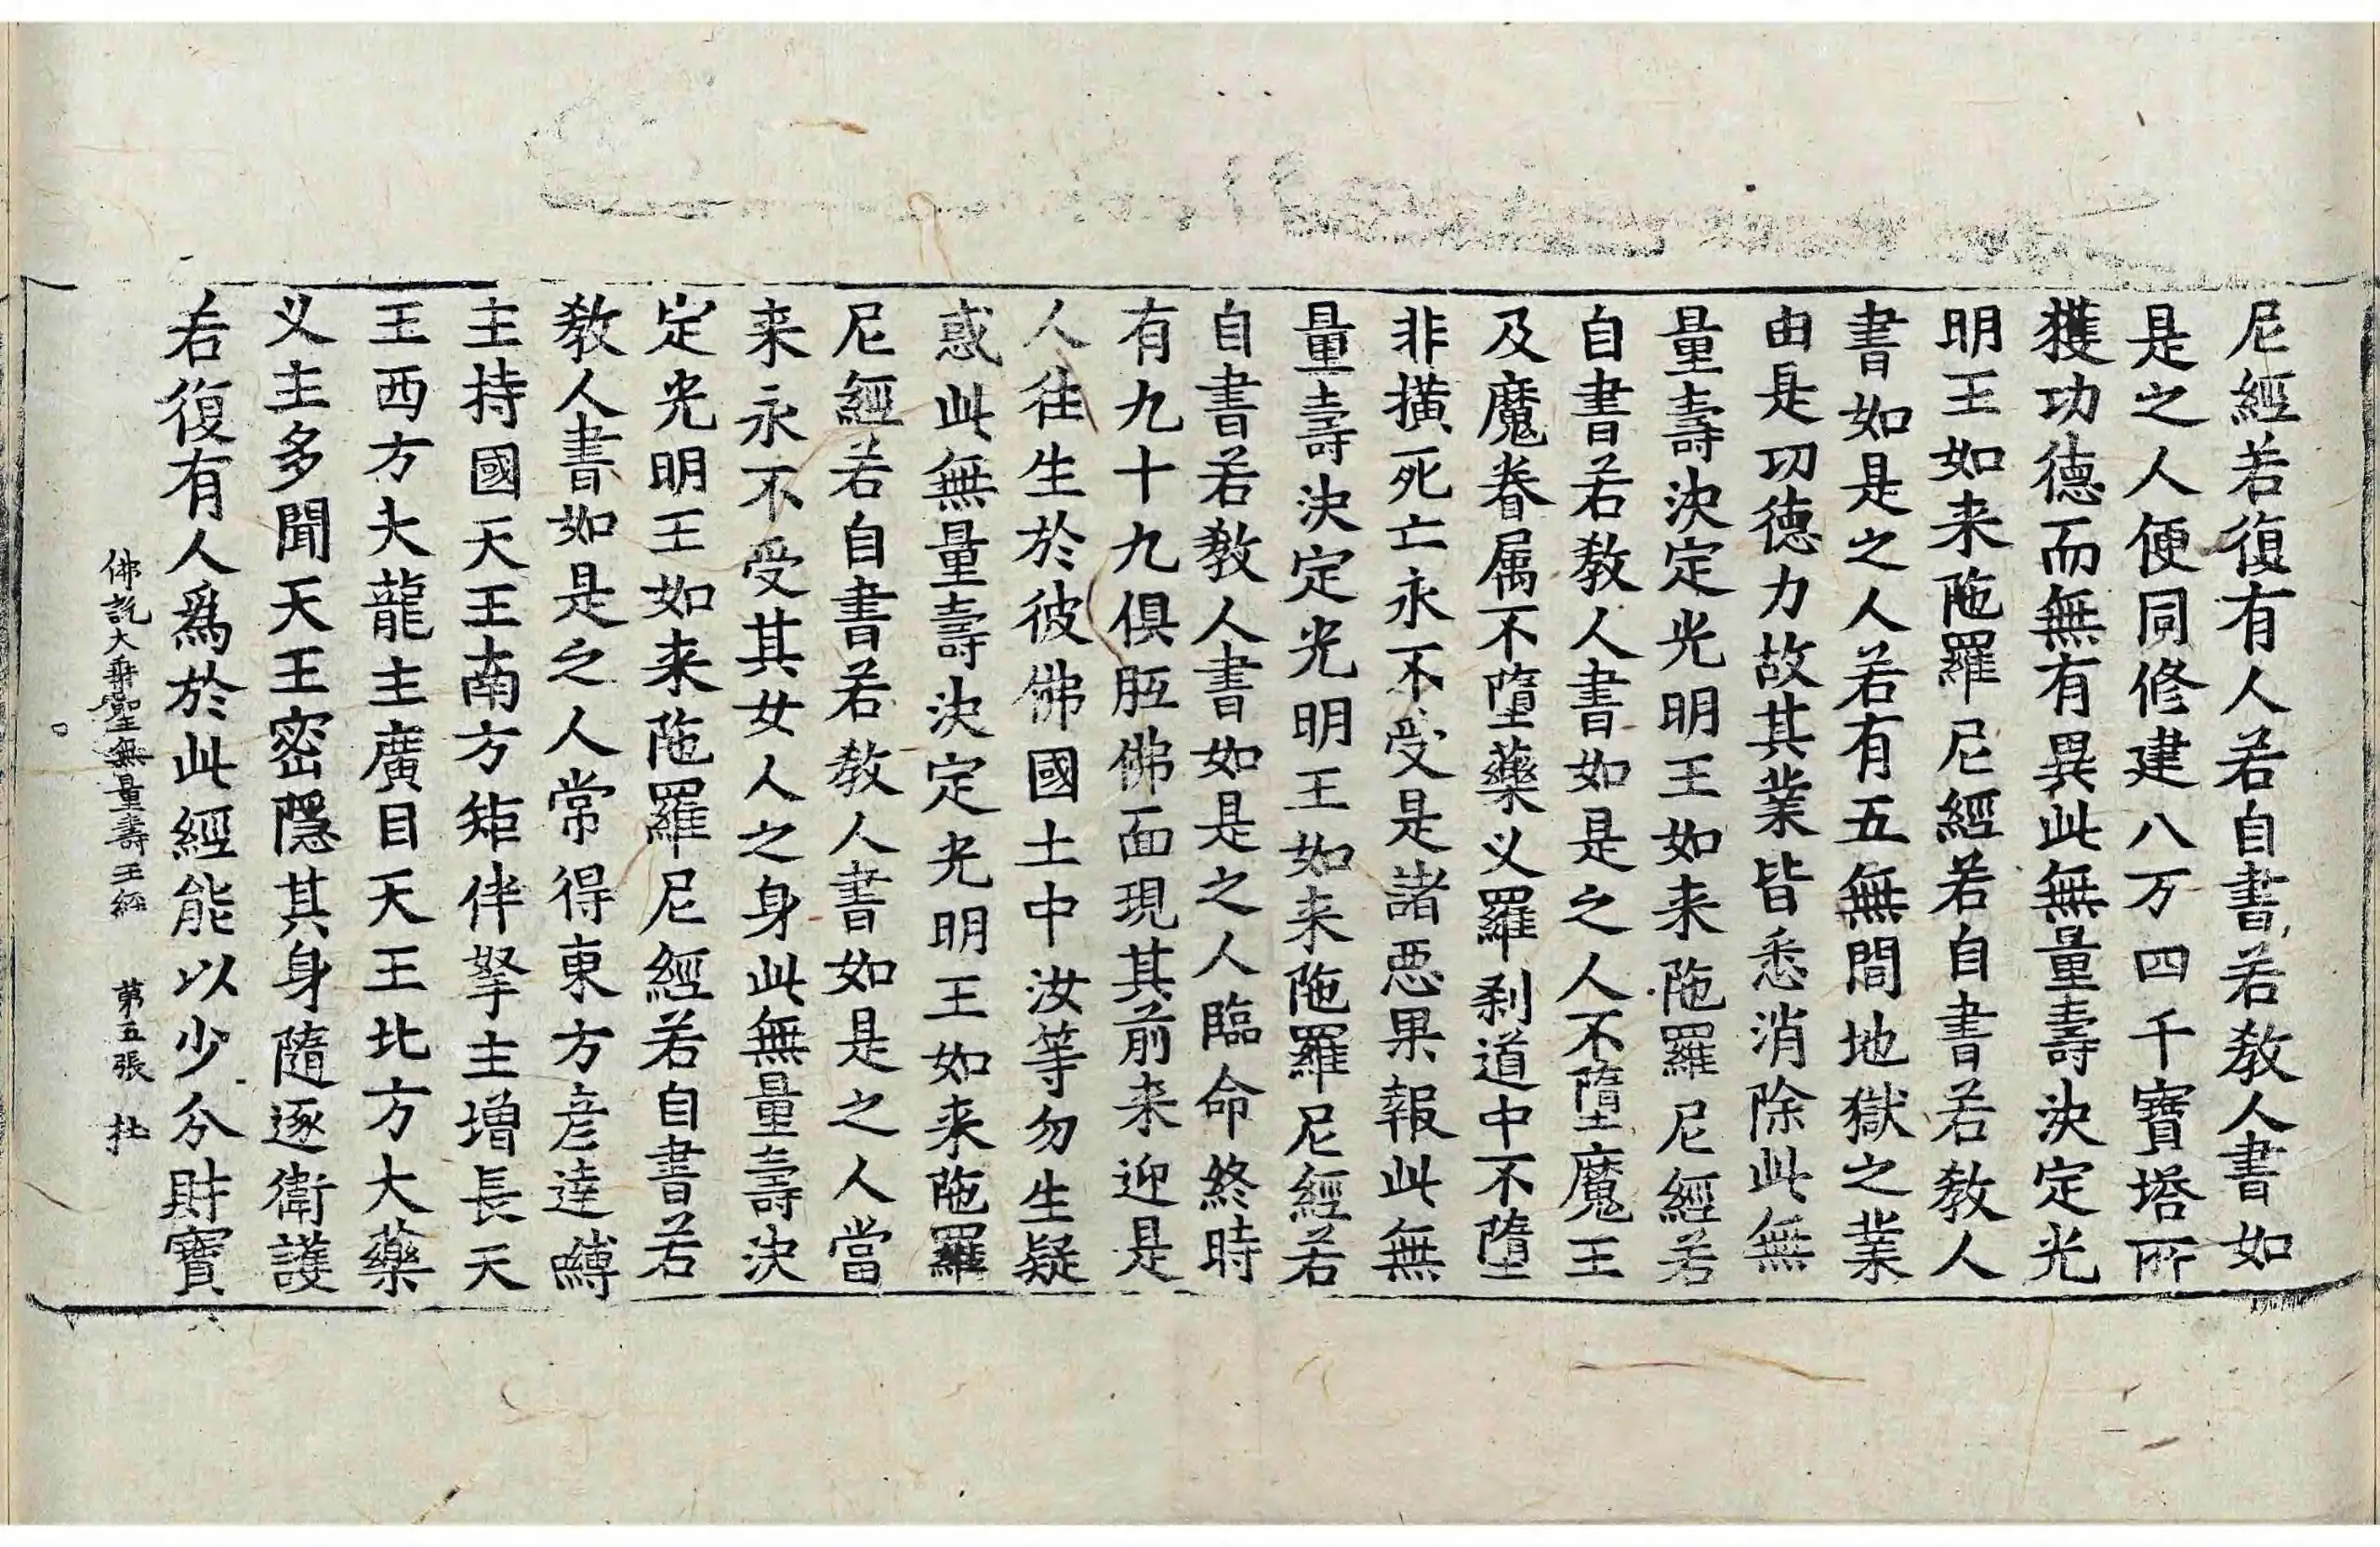 尼經若復有人若自書若教人書如
是之人便同修建八万四千寶塔所
獲功德而無有異此無量壽決定光
明王如来陁羅尼經若自書若教人
書如是之人若有五無間地獄之業
由是功德力故其業皆悉消除此無
量壽決定光明王如来陁羅尼經若
自書若教人書如是之人不墮魔王
及魔眷属不墮藥义羅刹道中不墮
非横死亡永不受是諸惡果報此無
量壽決定光明王如来陁羅尼經若
自書若教人書如是之人臨命終時
有九十九俱胝佛面現其前来迎是
人往生於彼佛國土中汝等勿生疑
惑此無量壽決定光明王如来陁羅
尼經若自書若教人書如是之人當
来永不受其女人之身此無量壽決
定光明王如来陁羅尼經若自書若
教人書如是之人常得東方彦達嚩
主持國天王南方矩伴拏主增長天
王西方大龍主廣目天王北方大藥
义主多聞天王密隱其身隨逐衛護
若復有人爲於此經能以少分財寶
佛說大乘聖無量壽王經 第五張 杜